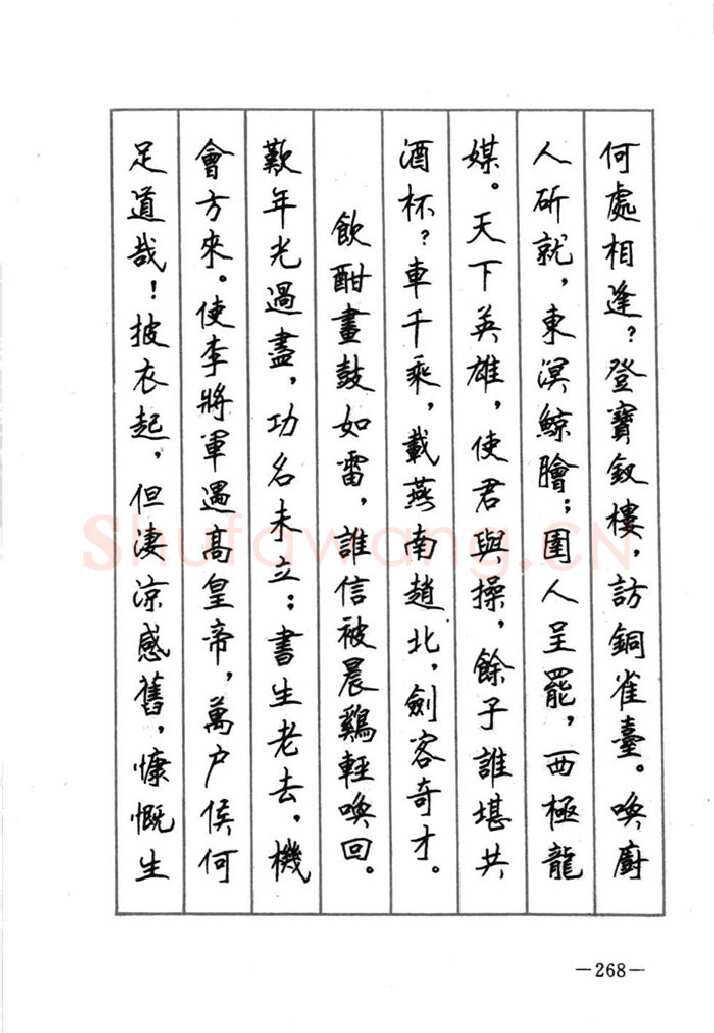 何處相逢？登寶釵樓，訪銅雀臺。喚廚
人斫就，東溟鯨膾；圉人呈罷，西極龍
媒。天下英雄，使君與操，餘子誰堪共
酒杯？車千乘，載燕南趙北，劍客奇才。
飲酣畫鼓如雷，誰信被晨鷄輕喚回。
歎年光過盡，功名未立；書生老去，機
會方來。使李將軍遇高皇帝，萬户侯何
足道哉！披衣起，但淒涼感舊，慷慨生
—268—
Shufawang.CN